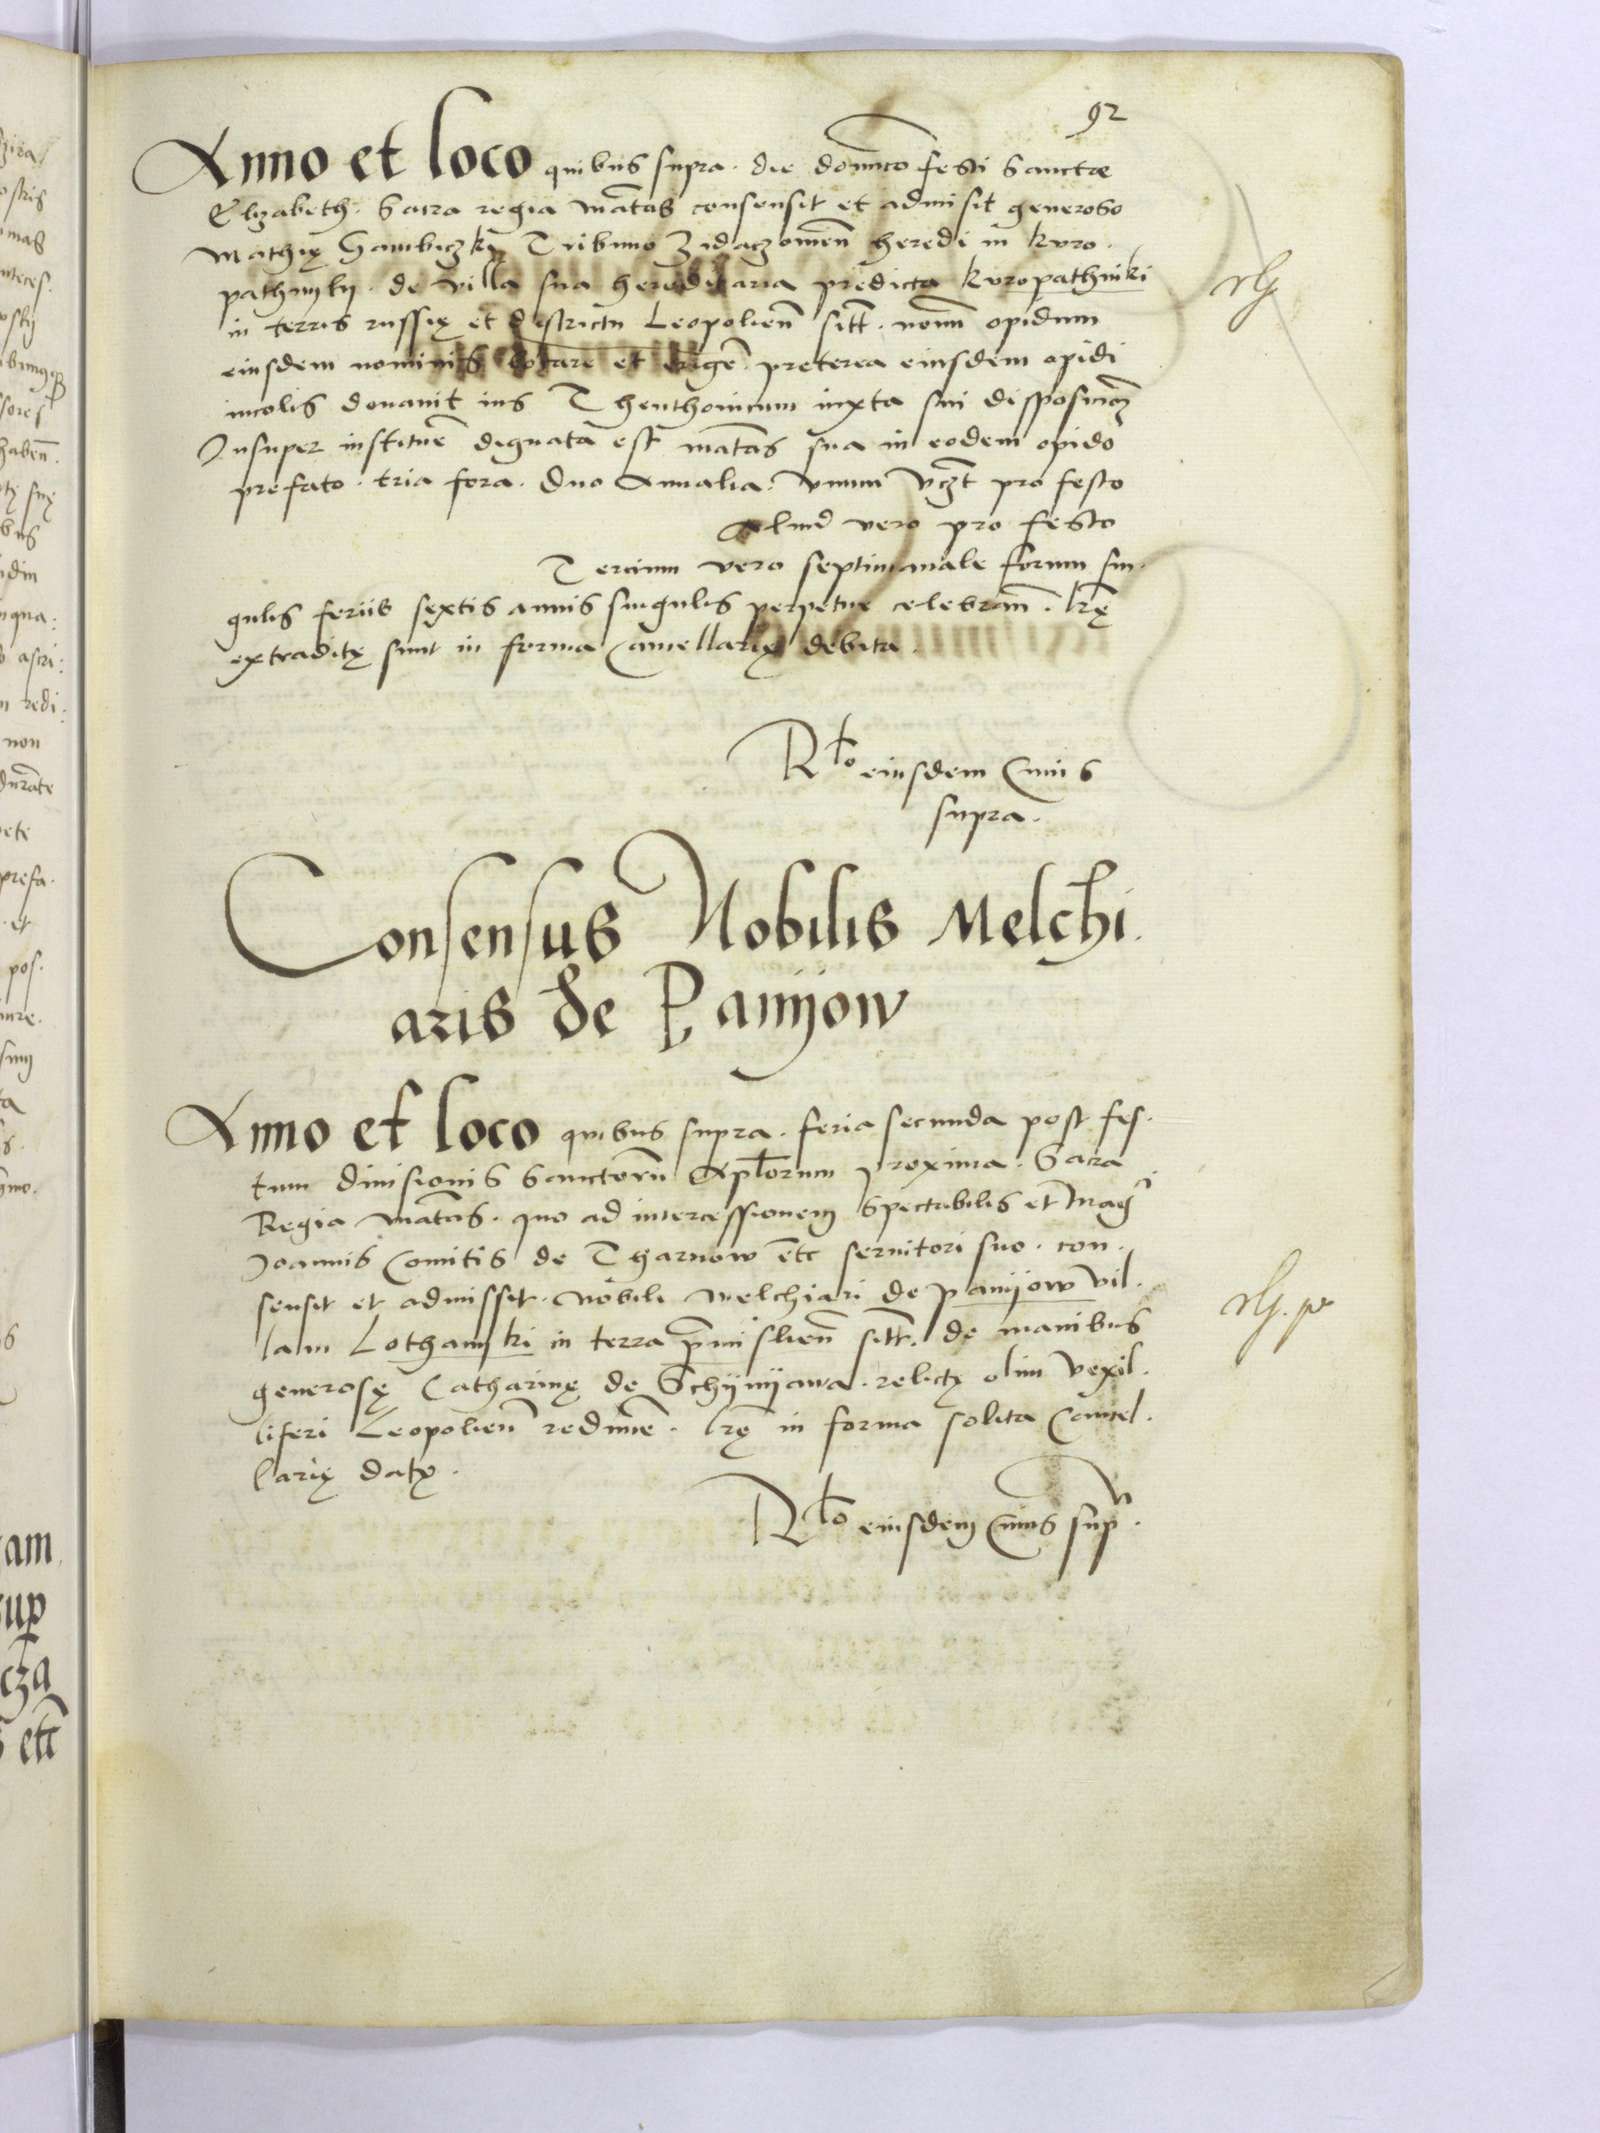 92
Anno et loco quibus supra. die domĩco festi Sanctæ
Elyzabeth. Sacra regia Maˉtas consensit et admisit generoso
Mathię Tribuno Zidaczomeñ heredi in kuro.
pathnyky. de villa sua hereditaria predicta kuropathniki
in terris russię et districtu Leopolieñ sitˉ. nouũ opidum
eiusdem nominis locare et erigeˉ. preterea eiusdem opidi
incolis donauit ius Theuthonicum iuxta sui disposicioˉ
Insuper instituẽ dignata est maˉtas sua in eodem opido
prefato. tria fora. duo Annalia. vnum vcˉt pro festo
Aliud vero pro festo
Tercium vero septimanale forum sin.
gulis feriis sextis annis singulis perpetue celebranˉ. lrˉę
extraditę sunt in forma Cancellarię debita.
Rlˉo eiusdem Cuius
supra.
Consensus Nobilis Melchi.
aris de Panijow
Anno et loco quibus supra. feria secunda post fes.
tum diuisionis Sanctorũ Aplˉorum proxima. Sacra
Regia Maˉtas. quo ad intercessionem Spectabilis et Mag
Joannis Comitis de Tharnow etˉc seruitori suo. con.
sensit et admissit. Nobili Melchiari de panijow vil.
lam in terra pˉmislieñ sitˉ. de manibus
generosę Catharinę de Schijnijawa. relictę olim vexil.
liferi Leopolieñ redimẽ. lrˉę in forma solita Cancel.
larię datę.
Rlˉo eiusdem Cuius sup.